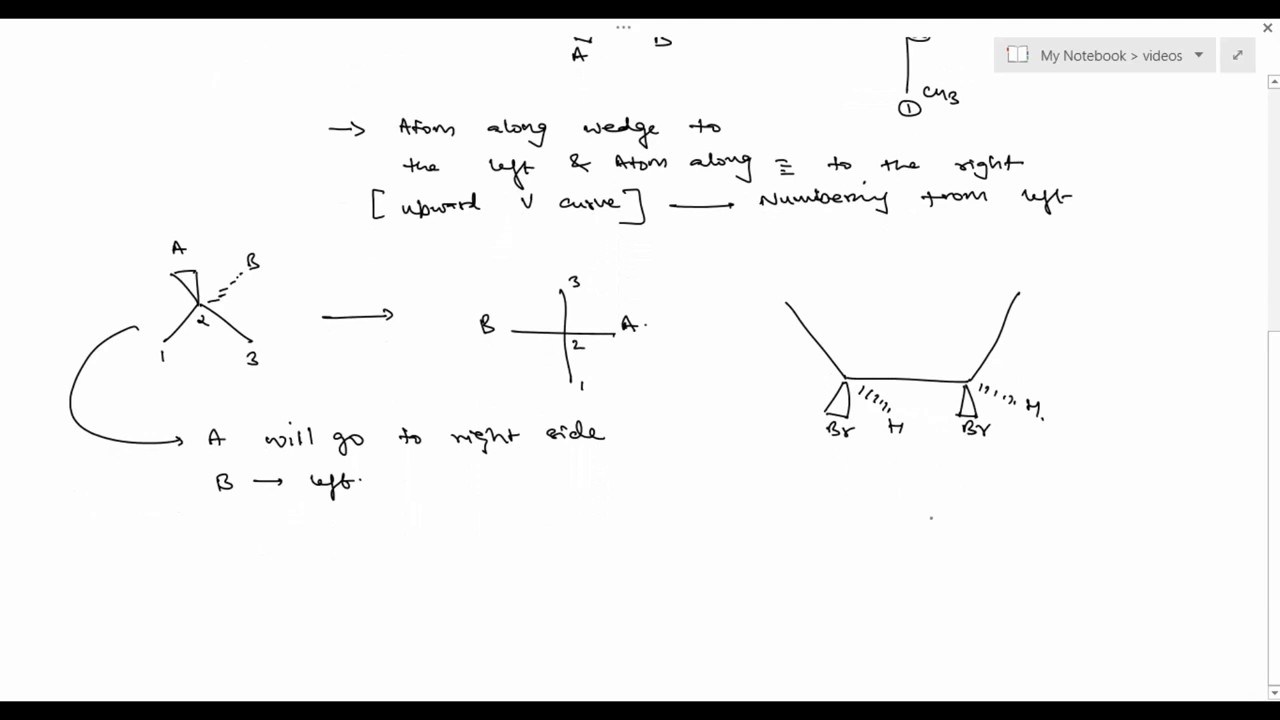 My Notebook > videos
A
CH3
1
→ Atom along wedge to
the left & Atom along to the right
[upward V curve] → Numbering from left
A
B
2
1
3
→
3
B
A.
2
1
Br
H
Br
H.
A will go to right side
B → left.